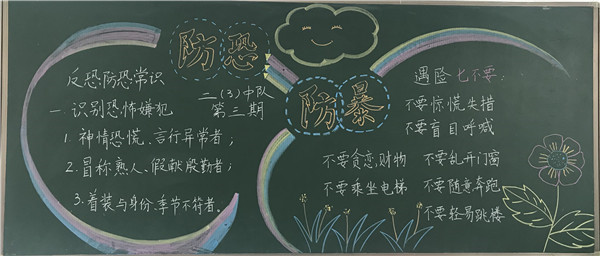 防恐
防暴
反恐防恐常识
一、识别恐怖嫌犯
1.神情恐慌、言行异常者；
2.冒称熟人、假献殷勤者；
3.着装与身份、季节不符者。
二(3)中队
第三期
遇险七不要：
不要惊慌失措
不要盲目呼喊
不要贪恋财物 不要乱开门窗
不要乘坐电梯 不要随意奔跑
不要轻易跳楼